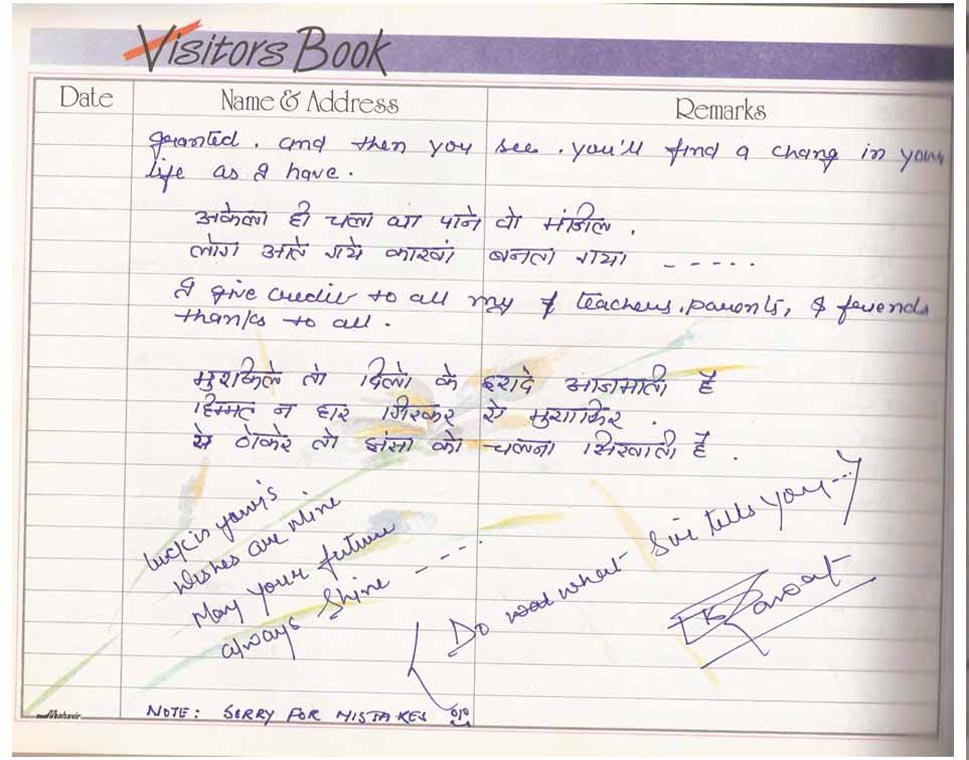 VISITORS BOOK
Date Name & Address Remarks
granted. and then you see. you'll find a chang in your
life as I have.
अकेला ही चला था पाने वो मंजिल.
लोग आते गये कारवां बनता गया -----
I give credit to all my & teachers, parents, & friends
thanks to all.
मुशकिले तो दिलो के इरादे आजमाती है
हिम्मत न हार गिरकर ये मुसाफिर.
ये ठोकर तो इंसा को चलना सिखाती है.
luck is your's
wishes are Mine
May your future
always Shine ----
Do what Sir tells you ---
NOTE: SORRY FOR MISTAKES
Mahavir